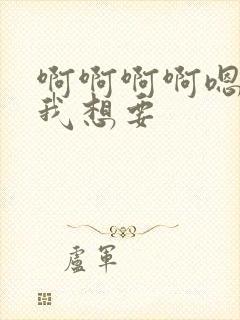 啊啊啊啊嗯
我想要
盧軍